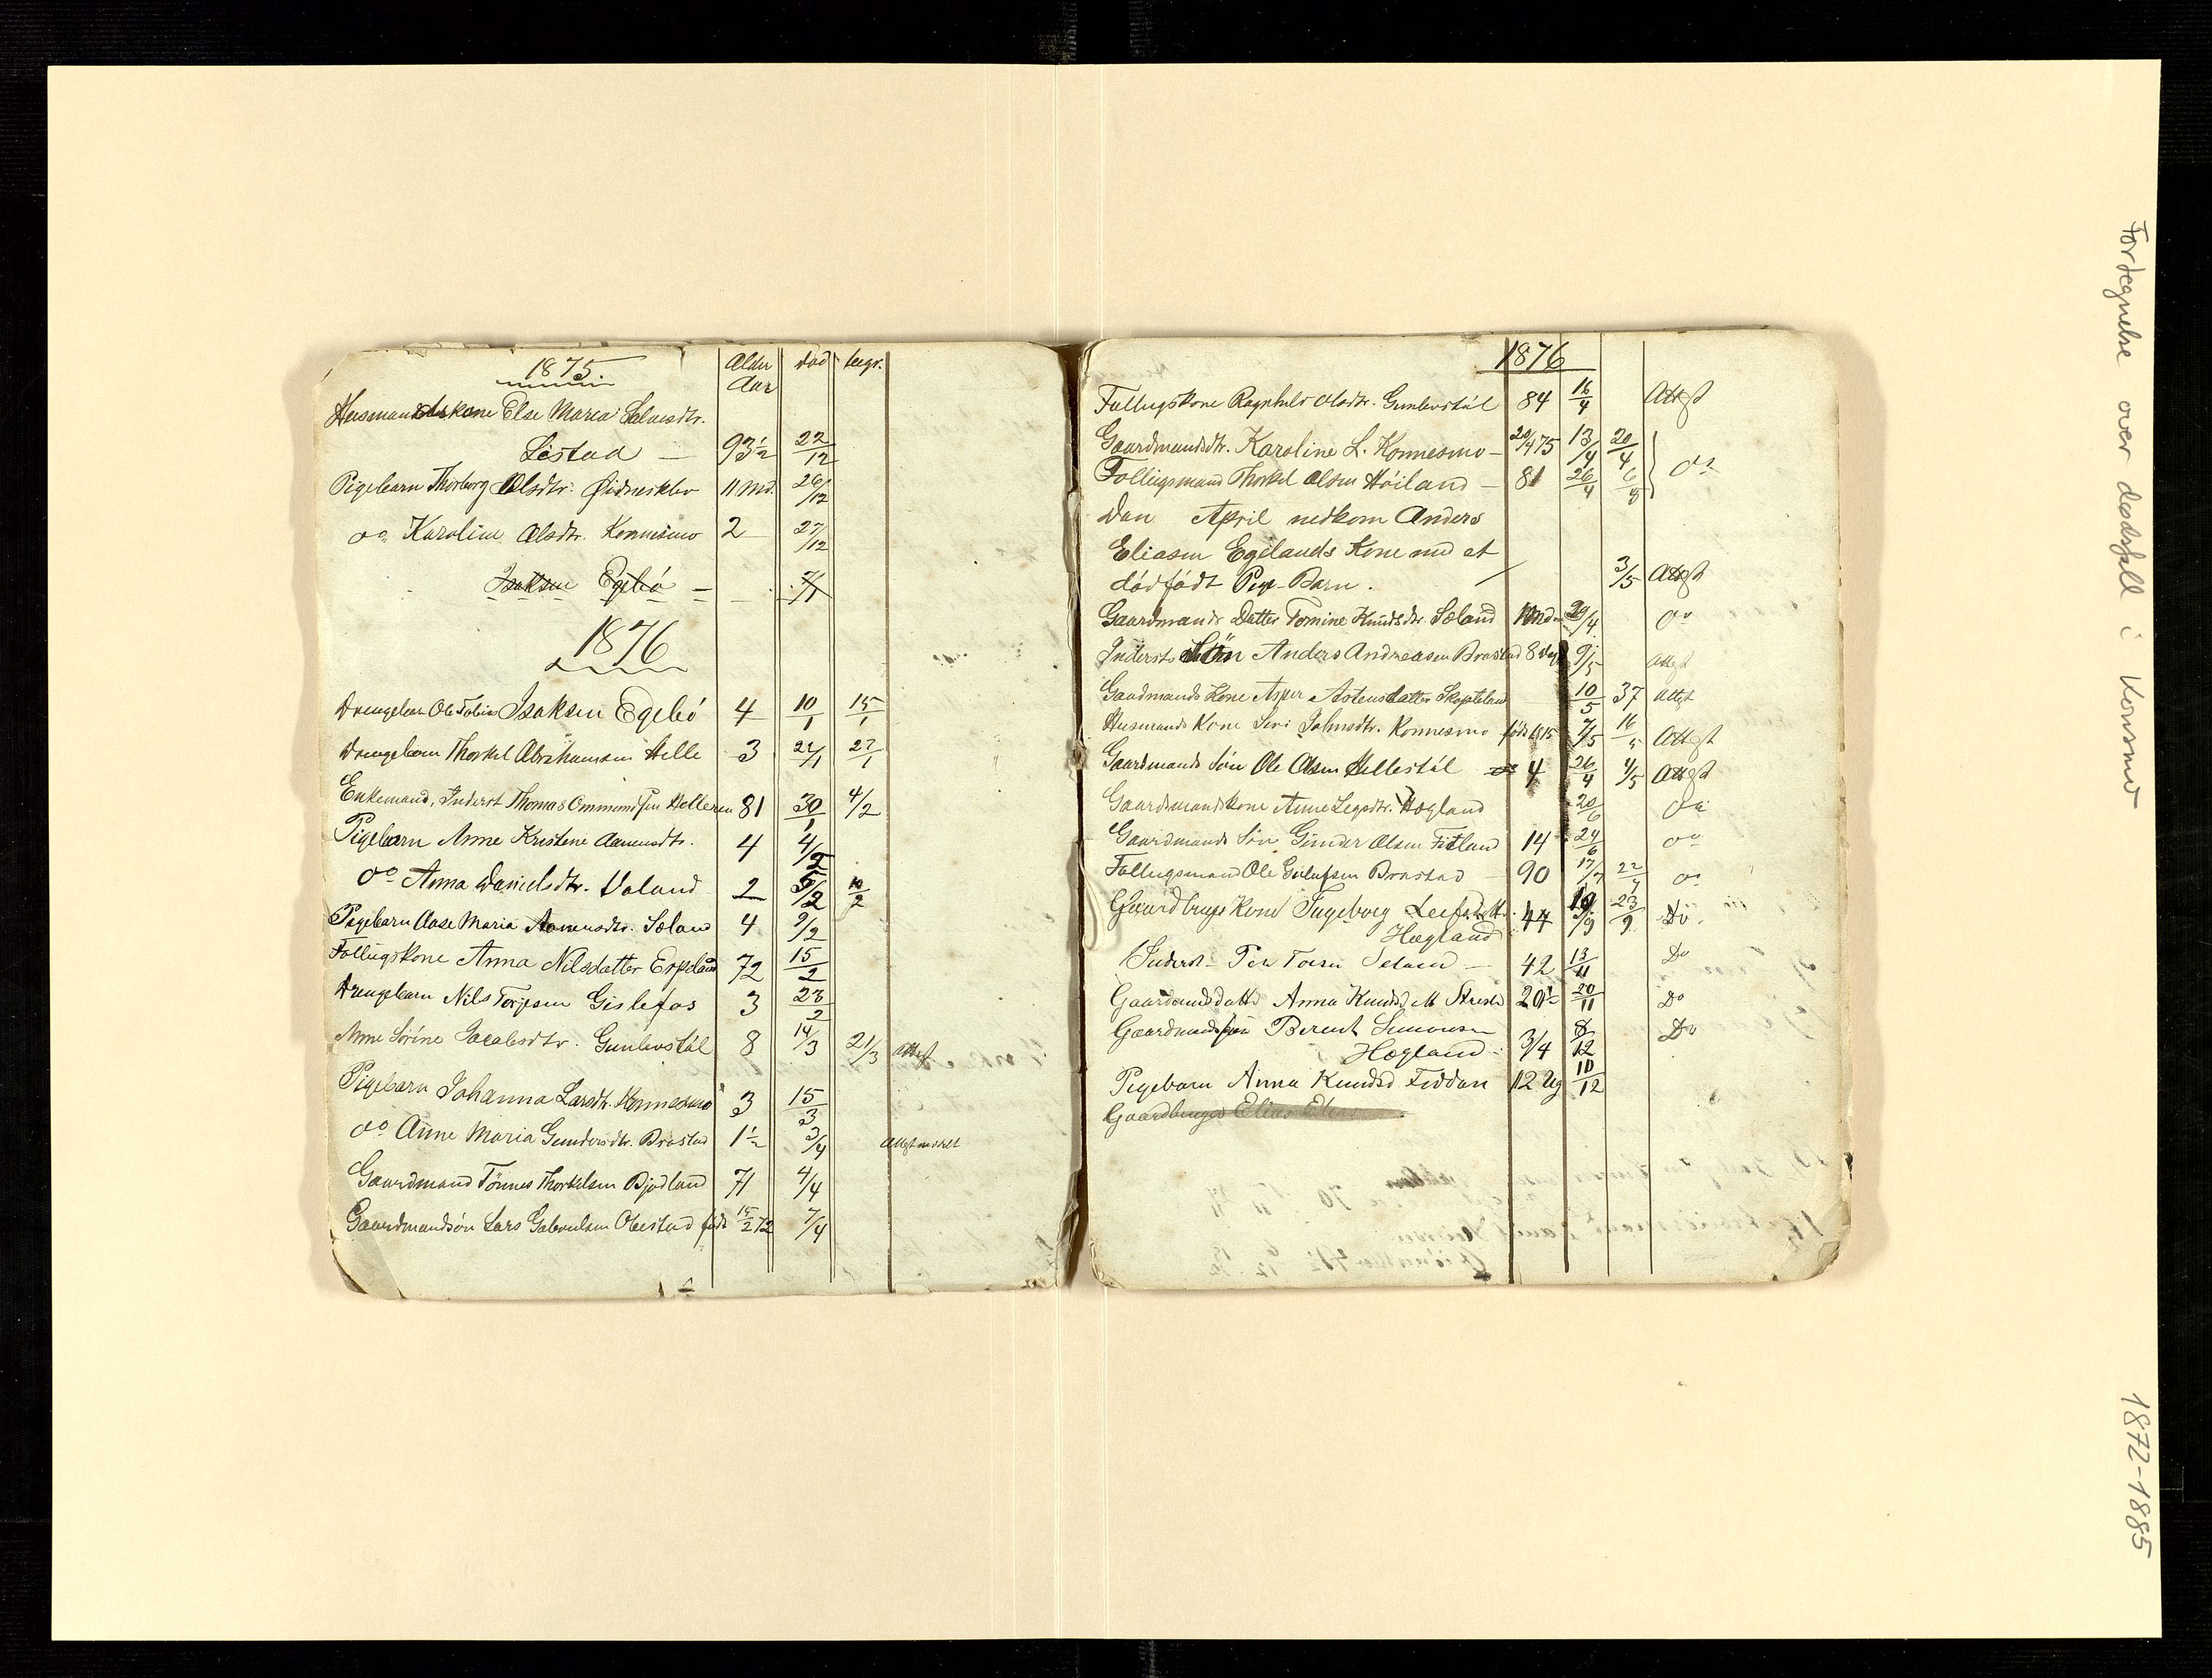 1875. Alder Aar død begr.
Husmandskone Else Maria Salvesdtr.
Lestad — 93½ 22/12
Pigebarn Thorborg Olsdtr. Øidnesklev 11 Md. 26/12
do Karoline Olsdtr. Konnesmo 2 27/12
Isaksen Egebö — 7/1
1876
Drengebarn Ole Tobias Isaksen Egebö 4 10/1 15/1
Drengebarn Thorkel Abrahamsen Helle 3 22/1 27/1
Enkemand, Inderst Thomas Ommundsen Helleren 81 30/1 4/2
Pigebarn Anne Kristene Aanensdtr. 4 4/2
do Anna Danielsdtr. Valand 2 5/2 10/2
Pigebarn Aase Maria Aanensdtr. Sæland 4 9/2
Follugskone Anna Nilsdatter Erpeland 72 15/2
Drengebarn Nils Torjesen Gislefos 3 23/2
Anne Sörine Jacobsdtr. Gunlevstöl 8 14/3 21/3 Attest
Pigebarn Johanna Larsdtr. Konnesmo 3 15/3
do Anne Maria Gundersdtr. Brastad 1½ 3/4 Attest meldt
Gaardmand Tönnes Thorkelsen Bjodland 71 4/4
Gaardmandsön Lars Gabrielsen Obestad födt 15/2 72 7/4
1876
Follugskone Ragnhild Olsdtr. Gunlevstöl 84 16/4 Attest
Gaardmandsdtr. Karoline L. Konnesmo — 20/4 75 13/4 20/4
Follugsmand Thorkel Olsen Höiland — 81 26/4 6/5 do
Den April nedkom Anders
Eliasen Egelands Kone med et
dödfödt Pige-Barn. 3/5 Attest
Gaardmands Datter Tomine Knudsdtr. Sæland Md. 29/4 do
Inderst Sön Anders Andreasen Brastad 8 Dag 9/5 Attest
Gaardmands Kone Asper Astensdatter Skofteland 10/5 37 Attest
Husmands Kone Siri Salvesdtr. Konnesmo födt 1815 7/5 16/5 Attest
Gaardmands Sön Ole Olsen Hellestöl 4 26/4 4/5 Attest
Gaardmandskone Anne Legsdtr. Hægland 20/6 do
Gaardmands Sön Gunder Olsen Fitland 14 24/6 do
Follugsmand Ole Gulufsen Brastad — 90 17/7 22/7 do
Gaardbrugs Kone Ingeborg Leefsdatt. 44 19/9 23/9 Do.
Hægland
Inderst Per Toresen Seland — 42 13/11 Do
Gaardmandsdatter Anna Knudsd 20½ 20/11 Do
Gaardmandssön Berent Simonsen
Hægland 3/4 8/12 Do
Pigebarn Anna Knudsd Fiddan 12 Ug 10/12
Gaardbruger Elias
Fortegnelse over dødsfall i Konsmo
1872-1885